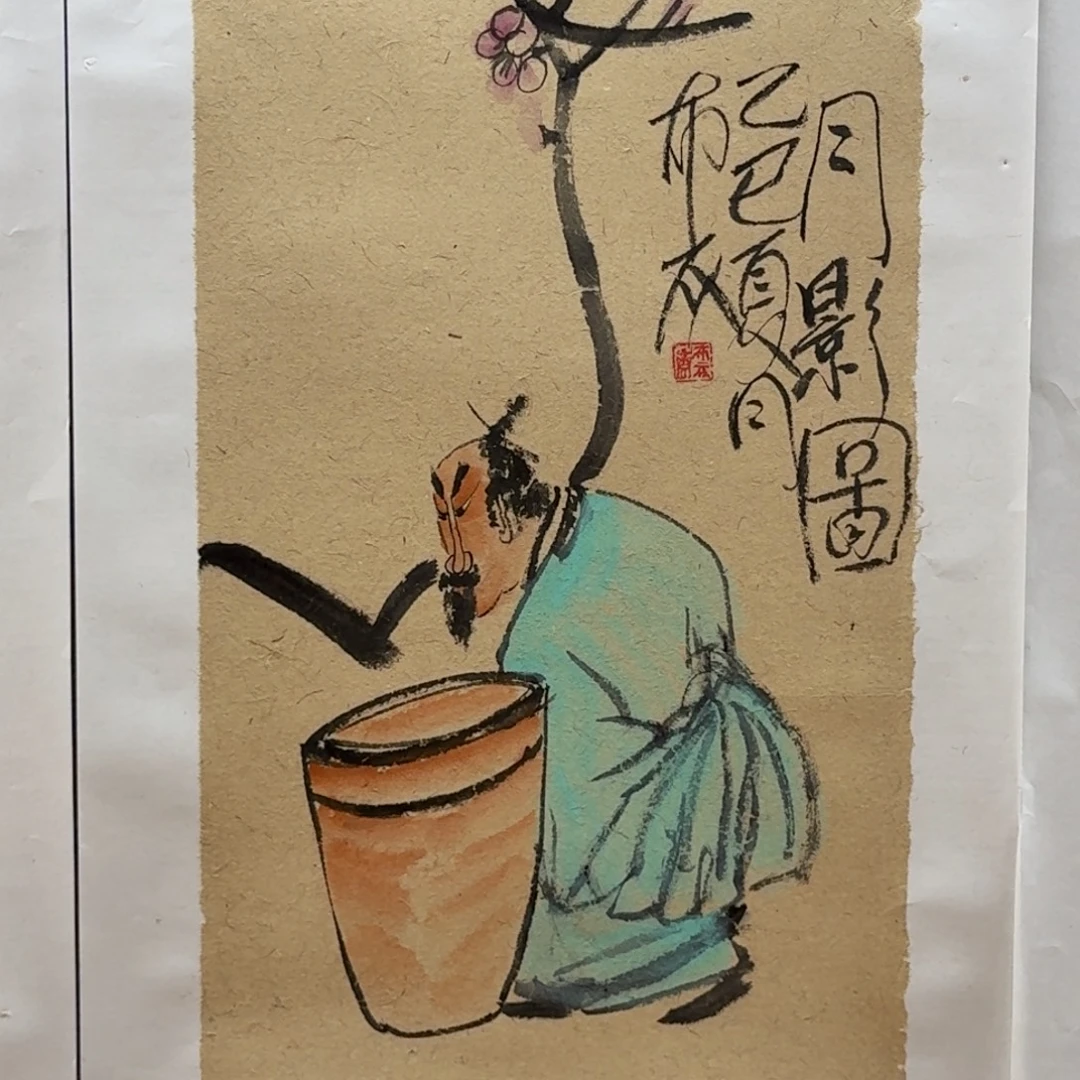 月影圖
乙巳夏月
布衣